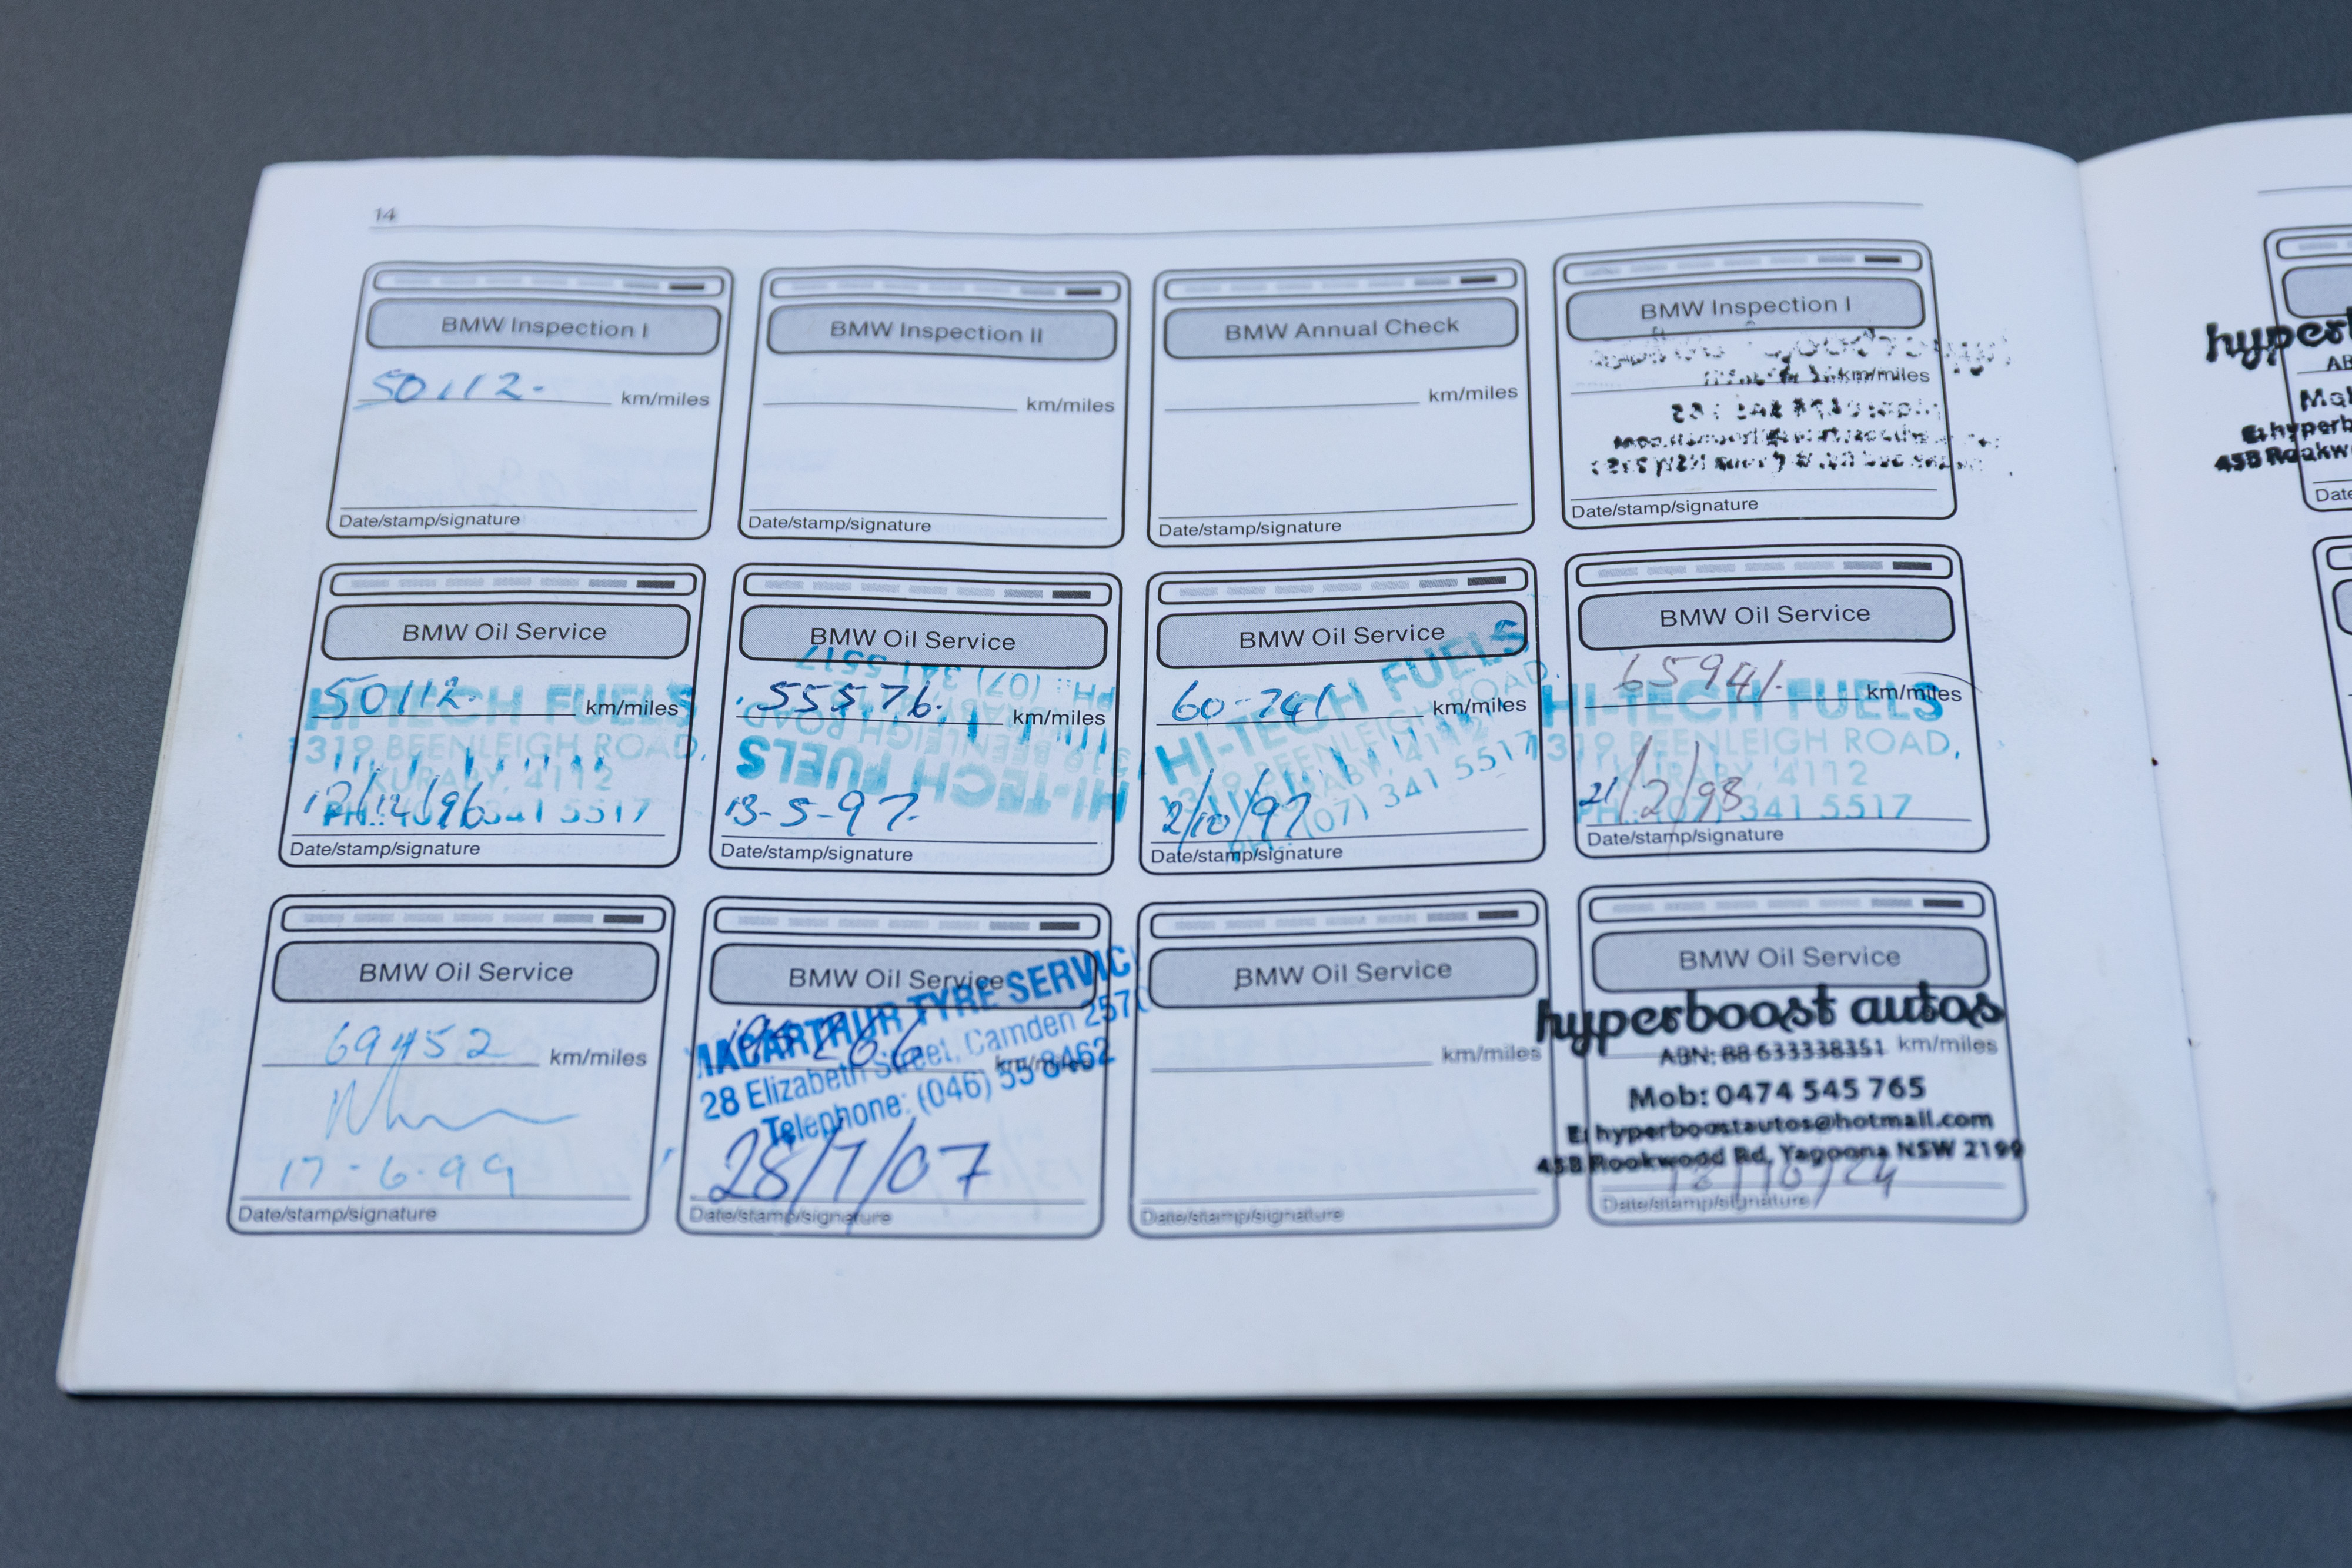 14
BMW Inspection I
50112.
km/miles
Date/stamp/signature
BMW Inspection II
km/miles
Date/stamp/signature
BMW Annual Check
km/miles
Date/stamp/signature
BMW Inspection I
km/miles
Date/stamp/signature
BMW Oil Service
50112.
km/miles
HI-TECH FUELS
1319 BEENLEIGH ROAD,
KURABY, 4112
PH.: (07) 341 5517
12/96
Date/stamp/signature
BMW Oil Service
55576.
km/miles
HI-TECH FUELS
1319 BEENLEIGH ROAD
KURABY, 4112
PH.: (07) 341 5517
13-5-97.
Date/stamp/signature
BMW Oil Service
60-741
km/miles
HI-TECH FUELS
1319 BEENLEIGH ROAD,
KURABY, 4112
PH.: (07) 341 5517
2/10/97
Date/stamp/signature
BMW Oil Service
65941.
km/miles
HI-TECH FUELS
1319 BEENLEIGH ROAD,
KURABY, 4112
PH.: (07) 341 5517
21/2/98
Date/stamp/signature
BMW Oil Service
69452
km/miles
17-6-99
Date/stamp/signature
BMW Oil Service
MACARTHUR TYRE SERVIC
km/miles
28 Elizabeth Street, Camden 2570
Telephone: (046) 55 8462
28/7/07
Date/stamp/signature
BMW Oil Service
km/miles
Date/stamp/signature
BMW Oil Service
hyperboost autos
km/miles
ABN: 88 633338351
Mob: 0474 545 765
E: hyperboostautos@hotmail.com
45B Rookwood Rd, Yagoona NSW 2199
/10/24
Date/stamp/signature
hyperb
AB
Mo
E: hyperb
45B Rookw
Date